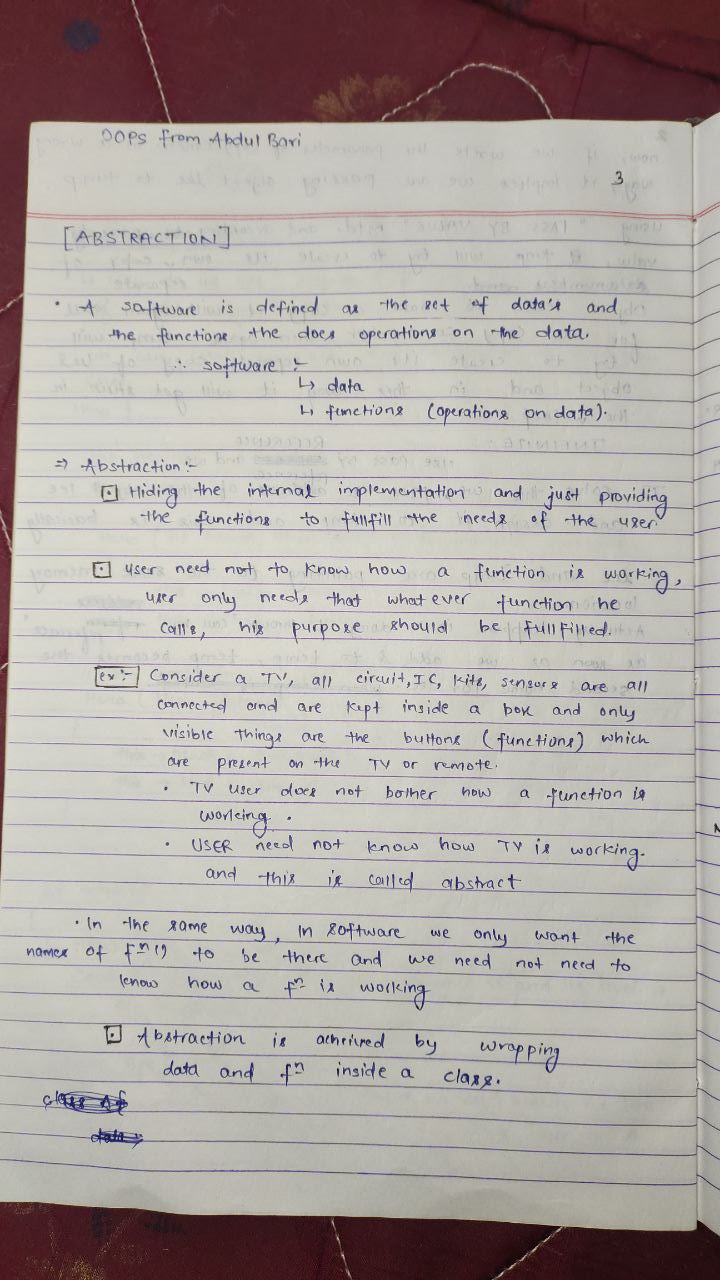 OOPS from Abdul Bari
3
[ABSTRACTION]
• A software is defined as the set of data's and
the functions the does operations on the data.
∴ software :-
↳ data
↳ functions (operations on data).
⇒ Abstraction :-
⊡ Hiding the internal implementation and just providing
the functions to fullfill the needs of the user
⊡ user need not to know how a function is working,
user only needs that what ever function he
calls, his purpose should be fullfilled.
[ex:-] Consider a TV, all circuit, IC, kits, sensors are all
connected and are kept inside a box and only
visible things are the buttons (functions) which
are present on the TV or remote.
• TV user does not bother how a function is
working.
• USER need not know how TV is working.
and this is called abstract
• In the same way, in software we only want the
names of fⁿ() to be there and we need not need to
know how a fⁿ is working
⊡ Abstraction is acheived by wrapping
data and fⁿ inside a class.